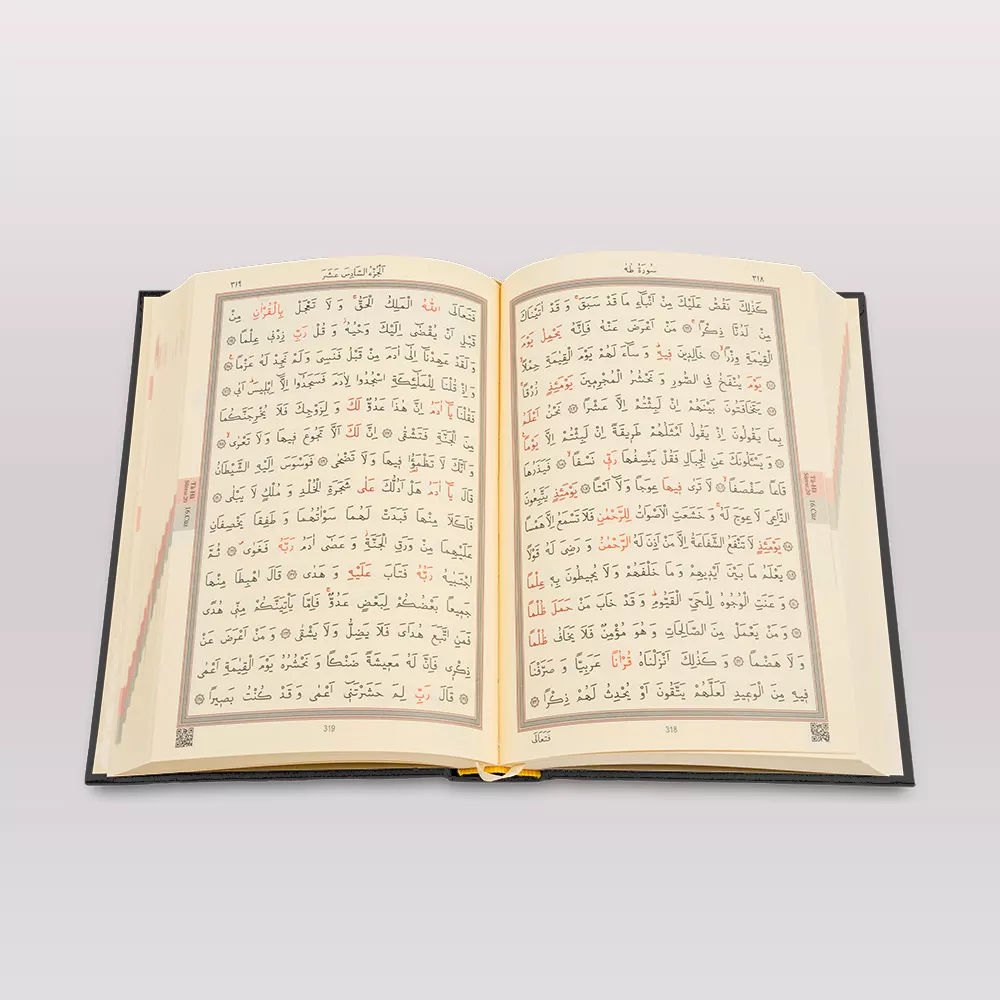 سُورَةُ طٰهٰ
٣١٨
كَذٰلِكَ نَقُصُّ عَلَيْكَ مِنْ اَنْبَٓاءِ مَا قَدْ سَبَقَۚ وَ قَدْ اٰتَيْنَاكَ
مِنْ لَدُنَّا ذِكْرًاۚ ۝ مَنْ اَعْرَضَ عَنْهُ فَاِنَّهُ يَحْمِلُ يَوْمَ
الْقِيٰمَةِ وِزْرًاۙ ۝ خَالِدِينَ فِيهِۜ وَ سَٓاءَ لَهُمْ يَوْمَ الْقِيٰمَةِ حِمْلًاۙ
۝ يَوْمَ يُنْفَخُ فِي الصُّورِ وَ نَحْشُرُ الْمُجْرِمِينَ يَوْمَئِذٍ زُرْقًاۚ
۝ يَتَخَافَتُونَ بَيْنَهُمْ اِنْ لَبِثْتُمْ اِلَّا عَشْرًا ۝ نَحْنُ اَعْلَمُ
بِمَا يَقُولُونَ اِذْ يَقُولُ اَمْثَلُهُمْ طَرِيقَةً اِنْ لَبِثْتُمْ اِلَّا يَوْمًا۟
۝ وَ يَسْـَٔلُونَكَ عَنِ الْجِبَالِ فَقُلْ يَنْسِفُهَا رَبِّي نَسْفًاۙ ۝ فَيَذَرُهَا
قَاعًا صَفْصَفًاۙ ۝ لَا تَرٰى فِيهَا عِوَجًا وَ لَٓا اَمْتًاۜ ۝ يَوْمَئِذٍ يَتَّبِعُونَ
الدَّاعِيَ لَا عِوَجَ لَهُۚ وَ خَشَعَتِ الْاَصْوَاتُ لِلرَّحْمٰنِ فَلَا تَسْمَعُ اِلَّا هَمْسًا
۝ يَوْمَئِذٍ لَا تَنْفَعُ الشَّفَاعَةُ اِلَّا مَنْ اَذِنَ لَهُ الرَّحْمٰنُ وَ رَضِيَ لَهُ قَوْلًا
۝ يَعْلَمُ مَا بَيْنَ اَيْدِيهِمْ وَ مَا خَلْفَهُمْ وَ لَا يُحِيطُونَ بِهِ عِلْمًا
۝ وَ عَنَتِ الْوُجُوهُ لِلْحَيِّ الْقَيُّومِۜ وَ قَدْ خَابَ مَنْ حَمَلَ ظُلْمًا
۝ وَ مَنْ يَعْمَلْ مِنَ الصَّالِحَاتِ وَ هُوَ مُؤْمِنٌ فَلَا يَخَافُ ظُلْمًا
وَ لَا هَضْمًا ۝ وَ كَذٰلِكَ اَنْزَلْنَاهُ قُرْاٰنًا عَرَبِيًّا وَ صَرَّفْنَا
فِيهِ مِنَ الْوَعِيدِ لَعَلَّهُمْ يَتَّقُونَ اَوْ يُحْدِثُ لَهُمْ ذِكْرًا ۝
318
فَتَعَالَى
Tâ-Hâ
Sûresi:20
16.Cüz
٣١٩
اَلْجُزْءُ السَّادِسَ عَشَرَ
فَتَعَالَى اللّٰهُ الْمَلِكُ الْحَقُّۚ وَ لَا تَعْجَلْ بِالْقُرْاٰنِ مِنْ
قَبْلِ اَنْ يُقْضٰٓى اِلَيْكَ وَحْيُهُۘ وَ قُلْ رَبِّ زِدْنِي عِلْمًا ۝
وَ لَقَدْ عَهِدْنَٓا اِلٰٓى اٰدَمَ مِنْ قَبْلُ فَنَسِيَ وَ لَمْ نَجِدْ لَهُ عَزْمًا۟ ۝
وَ اِذْ قُلْنَا لِلْمَلٰٓئِكَةِ اسْجُدُوا لِاٰدَمَ فَسَجَدُٓوا اِلَّٓا اِبْلِيسَۜ اَبٰى ۝
فَقُلْنَا يَٓا اٰدَمُ اِنَّ هٰذَا عَدُوٌّ لَكَ وَ لِزَوْجِكَ فَلَا يُخْرِجَنَّكُمَا
مِنَ الْجَنَّةِ فَتَشْقٰى ۝ اِنَّ لَكَ اَلَّا تَجُوعَ فِيهَا وَ لَا تَعْرٰىۙ ۝
وَ اَنَّكَ لَا تَظْمَؤُ۬ا فِيهَا وَ لَا تَضْحٰى ۝ فَوَسْوَسَ اِلَيْهِ الشَّيْطَانُ
قَالَ يَٓا اٰدَمُ هَلْ اَدُلُّكَ عَلٰى شَجَرَةِ الْخُلْدِ وَ مُلْكٍ لَا يَبْلٰى ۝
فَاَكَلَا مِنْهَا فَبَدَتْ لَهُمَا سَوْاٰتُهُمَا وَ طَفِقَا يَخْصِفَانِ
عَلَيْهِمَا مِنْ وَرَقِ الْجَنَّةِۘ وَ عَصٰٓى اٰدَمُ رَبَّهُ فَغَوٰىۖ ۝ ثُمَّ
اجْتَبٰيهُ رَبُّهُ فَتَابَ عَلَيْهِ وَ هَدٰى ۝ قَالَ اهْبِطَا مِنْهَا
جَمِيعًا بَعْضُكُمْ لِبَعْضٍ عَدُوٌّۚ فَاِمَّا يَأْتِيَنَّكُمْ مِنِّي هُدًى
فَمَنِ اتَّبَعَ هُدَايَ فَلَا يَضِلُّ وَ لَا يَشْقٰى ۝ وَ مَنْ اَعْرَضَ عَنْ
ذِكْرِي فَاِنَّ لَهُ مَعِيشَةً ضَنْكًا وَ نَحْشُرُهُ يَوْمَ الْقِيٰمَةِ اَعْمٰى
۝ قَالَ رَبِّ لِمَ حَشَرْتَنِٓي اَعْمٰى وَ قَدْ كُنْتُ بَصِيرًا ۝
319
Tâ-Hâ
Sûresi:20
16.Cüz